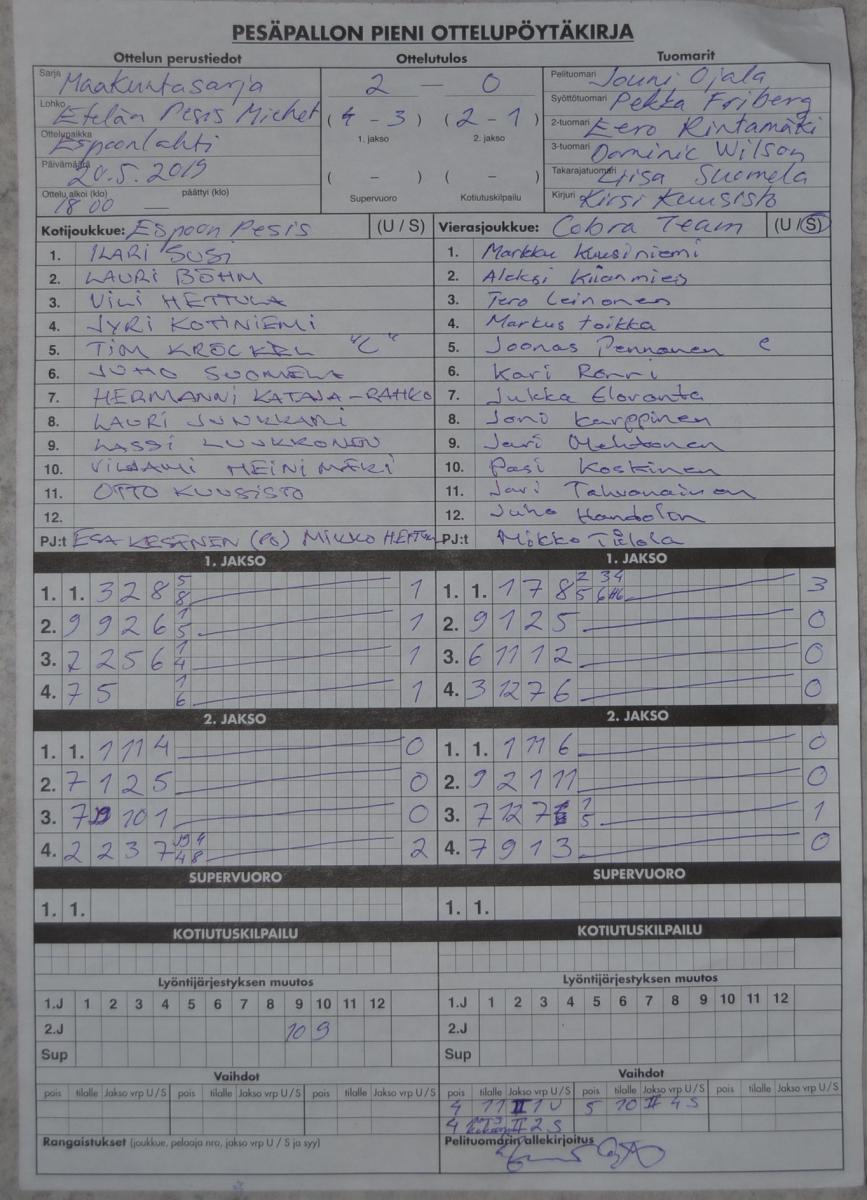 PESÄPALLON PIENI OTTELUPÖYTÄKIRJA
Ottelun perustiedot Ottelutulos Tuomarit
Sarja Maakuntasarja 2 — 0 Pelituomari Jouni Ojala
Lohko Etelän Pesis Miehet ( 4 - 3 ) ( 2 - 1 ) Syöttötuomari Pekka Friberg
1. jakso 2. jakso 2-tuomari Eero Rintamäki
Ottelupaikka Espoonlahti 3-tuomari Dominic Wilson
Päivämäärä 20.5.2019 ( – ) ( – ) Takarajatuomari Liisa Suomela
Ottelu alkoi (klo) 18 00 — päättyi (klo) Supervuoro Kotiutuskilpailu Kirjuri Kirsi Kuusisto
Kotijoukkue: Espoon Pesis (U / S) Vierasjoukkue: Cobra Team (U / S)
1. ILARI SUSI 1. Markku Kuusiniemi
2. LAURI BÖHM 2. Aleksi Kiianmies
3. VILI HETTULA 3. Tero Leinonen
4. JYRI KOTINIEMI 4. Markus Toikka
5. TIM KRÖCKEL "C" 5. Joonas Pennanen c
6. JUHO SUOMELA 6. Kari Rönni
7. HERMANNI KATAJA-RAHKO 7. Jukka Eloranta
8. LAURI JUNKKARI 8. Joni Karppinen
9. LASSI LUUKKONEN 9. Jari Mehtonen
10. VILJAMI HEINIMÄKI 10. Pasi Koskinen
11. OTTO KUUSISTO 11. Jari Tahvanainen
12. 12. Juha Handolin
PJ:t ESA KESÄNEN (PJ) MIKKO PJ:t Mikko
1. JAKSO 1. JAKSO
1. 1. 3 2 8 5 8 1 1. 1. 1 7 8 2 5 3 4 6 3
2. 9 9 2 6 1 5 1 2. 9 1 2 5 0
3. 7 2 5 6 1 4 1 3. 6 11 1 2 0
4. 7 5 1 6 1 4. 3 12 7 6 0
2. JAKSO 2. JAKSO
1. 1. 1 11 4 0 1. 1. 1 11 6 0
2. 7 1 2 5 0 2. 9 2 1 11 0
3. 7 10 1 0 3. 7 12 7 1 5 1
4. 2 2 3 7 4 4 8 2 4. 7 9 1 3 0
SUPERVUORO SUPERVUORO
1. 1. 1. 1.
KOTIUTUSKILPAILU KOTIUTUSKILPAILU
Lyöntijärjestyksen muutos Lyöntijärjestyksen muutos
1.J 1 2 3 4 5 6 7 8 9 10 11 12 1.J 1 2 3 4 5 6 7 8 9 10 11 12
2.J 10 9 2.J
Sup Sup
Vaihdot Vaihdot
pois tilalle Jakso vrp U / S pois tilalle Jakso vrp U / S pois tilalle Jakso vrp U / S pois tilalle Jakso vrp U / S pois tilalle Jakso vrp U / S pois tilalle Jakso vrp U / S
4 11 II 1 U 5 10 II 4 S
4 II 2 S
Rangaistukset (joukkue, pelaaja nro, jakso vrp U / S ja syy) Pelituomarin allekirjoitus